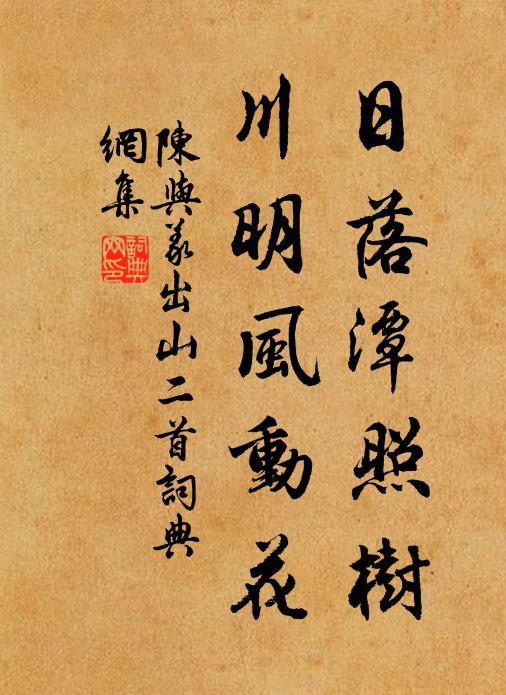 日落潭照樹
川明風動花
陳與義出山二首詞典
網集
詞典
网印